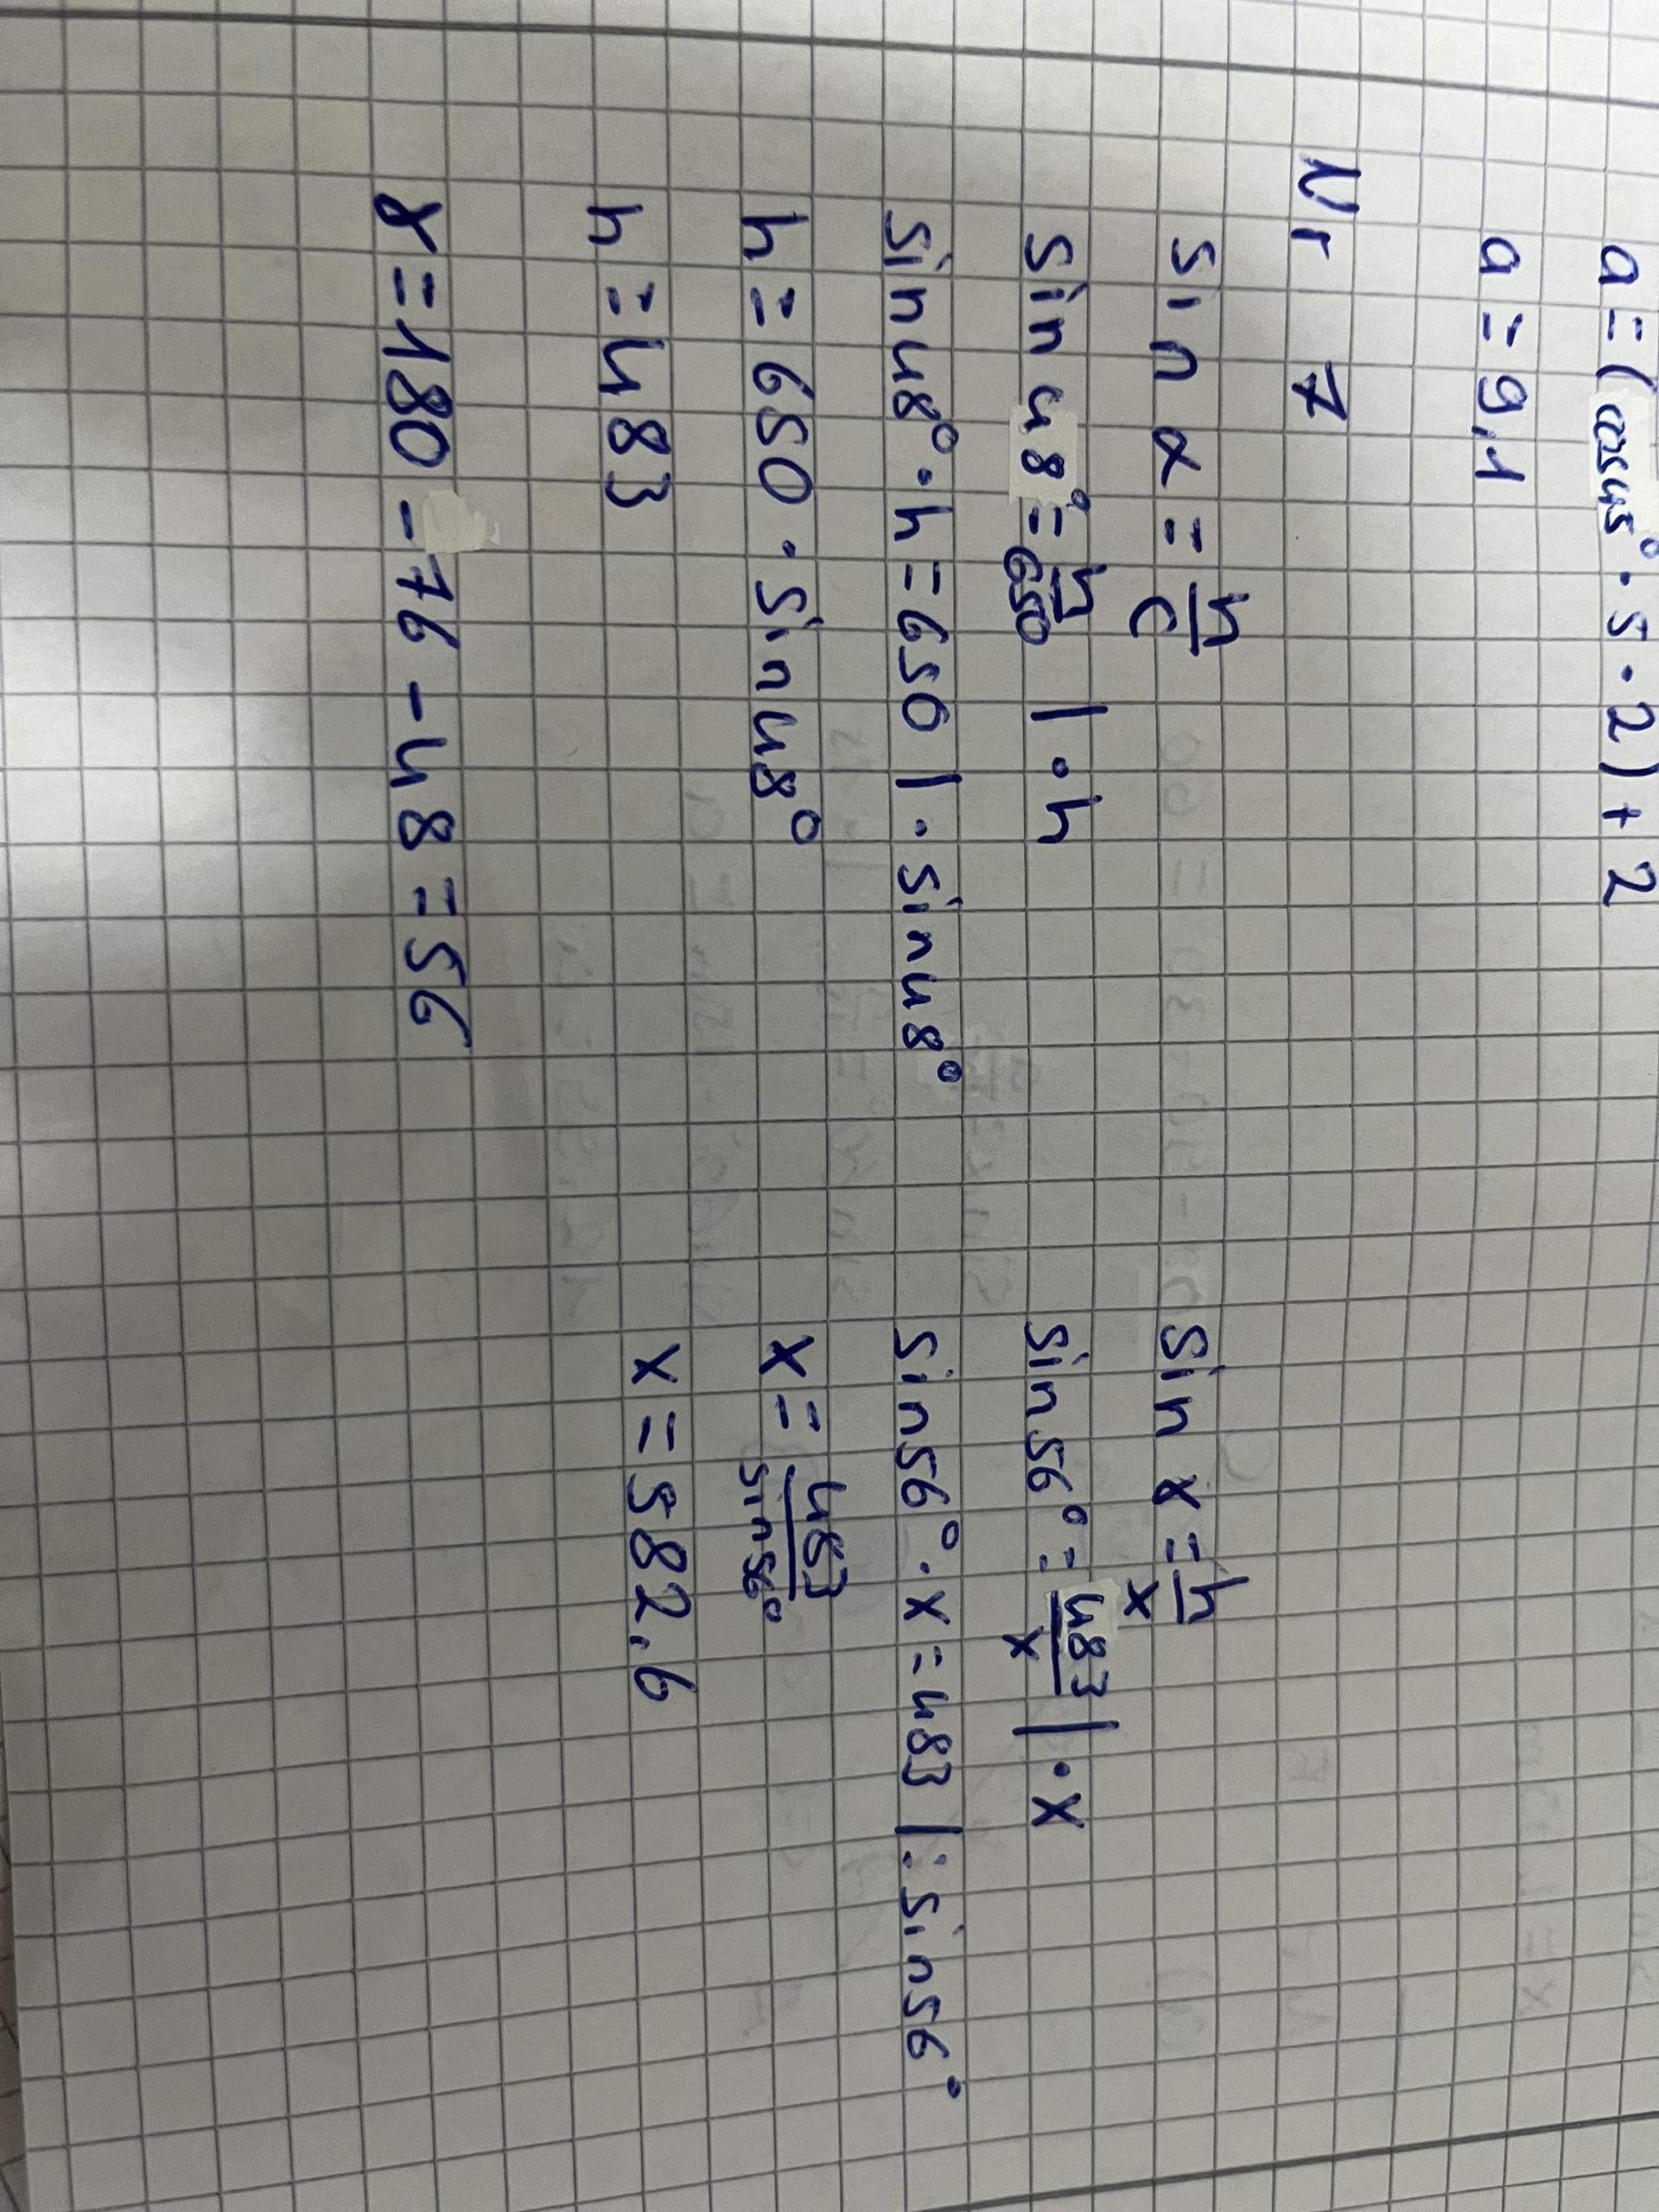 a = (cos45° · 5 · 2) + 2
a = 9,1
Nr 7
sin α = h/c
sin 48° = h/650 | · h
sin48° · h = 650 | · sin48°
h = 650 · sin48°
h = 483
γ = 180 - 76 - 48 = 56
sin γ = h/x
sin56° = 483/x | · x
sin56° · x = 483 | : sin56°
x = 483/sin56°
x = 582,6